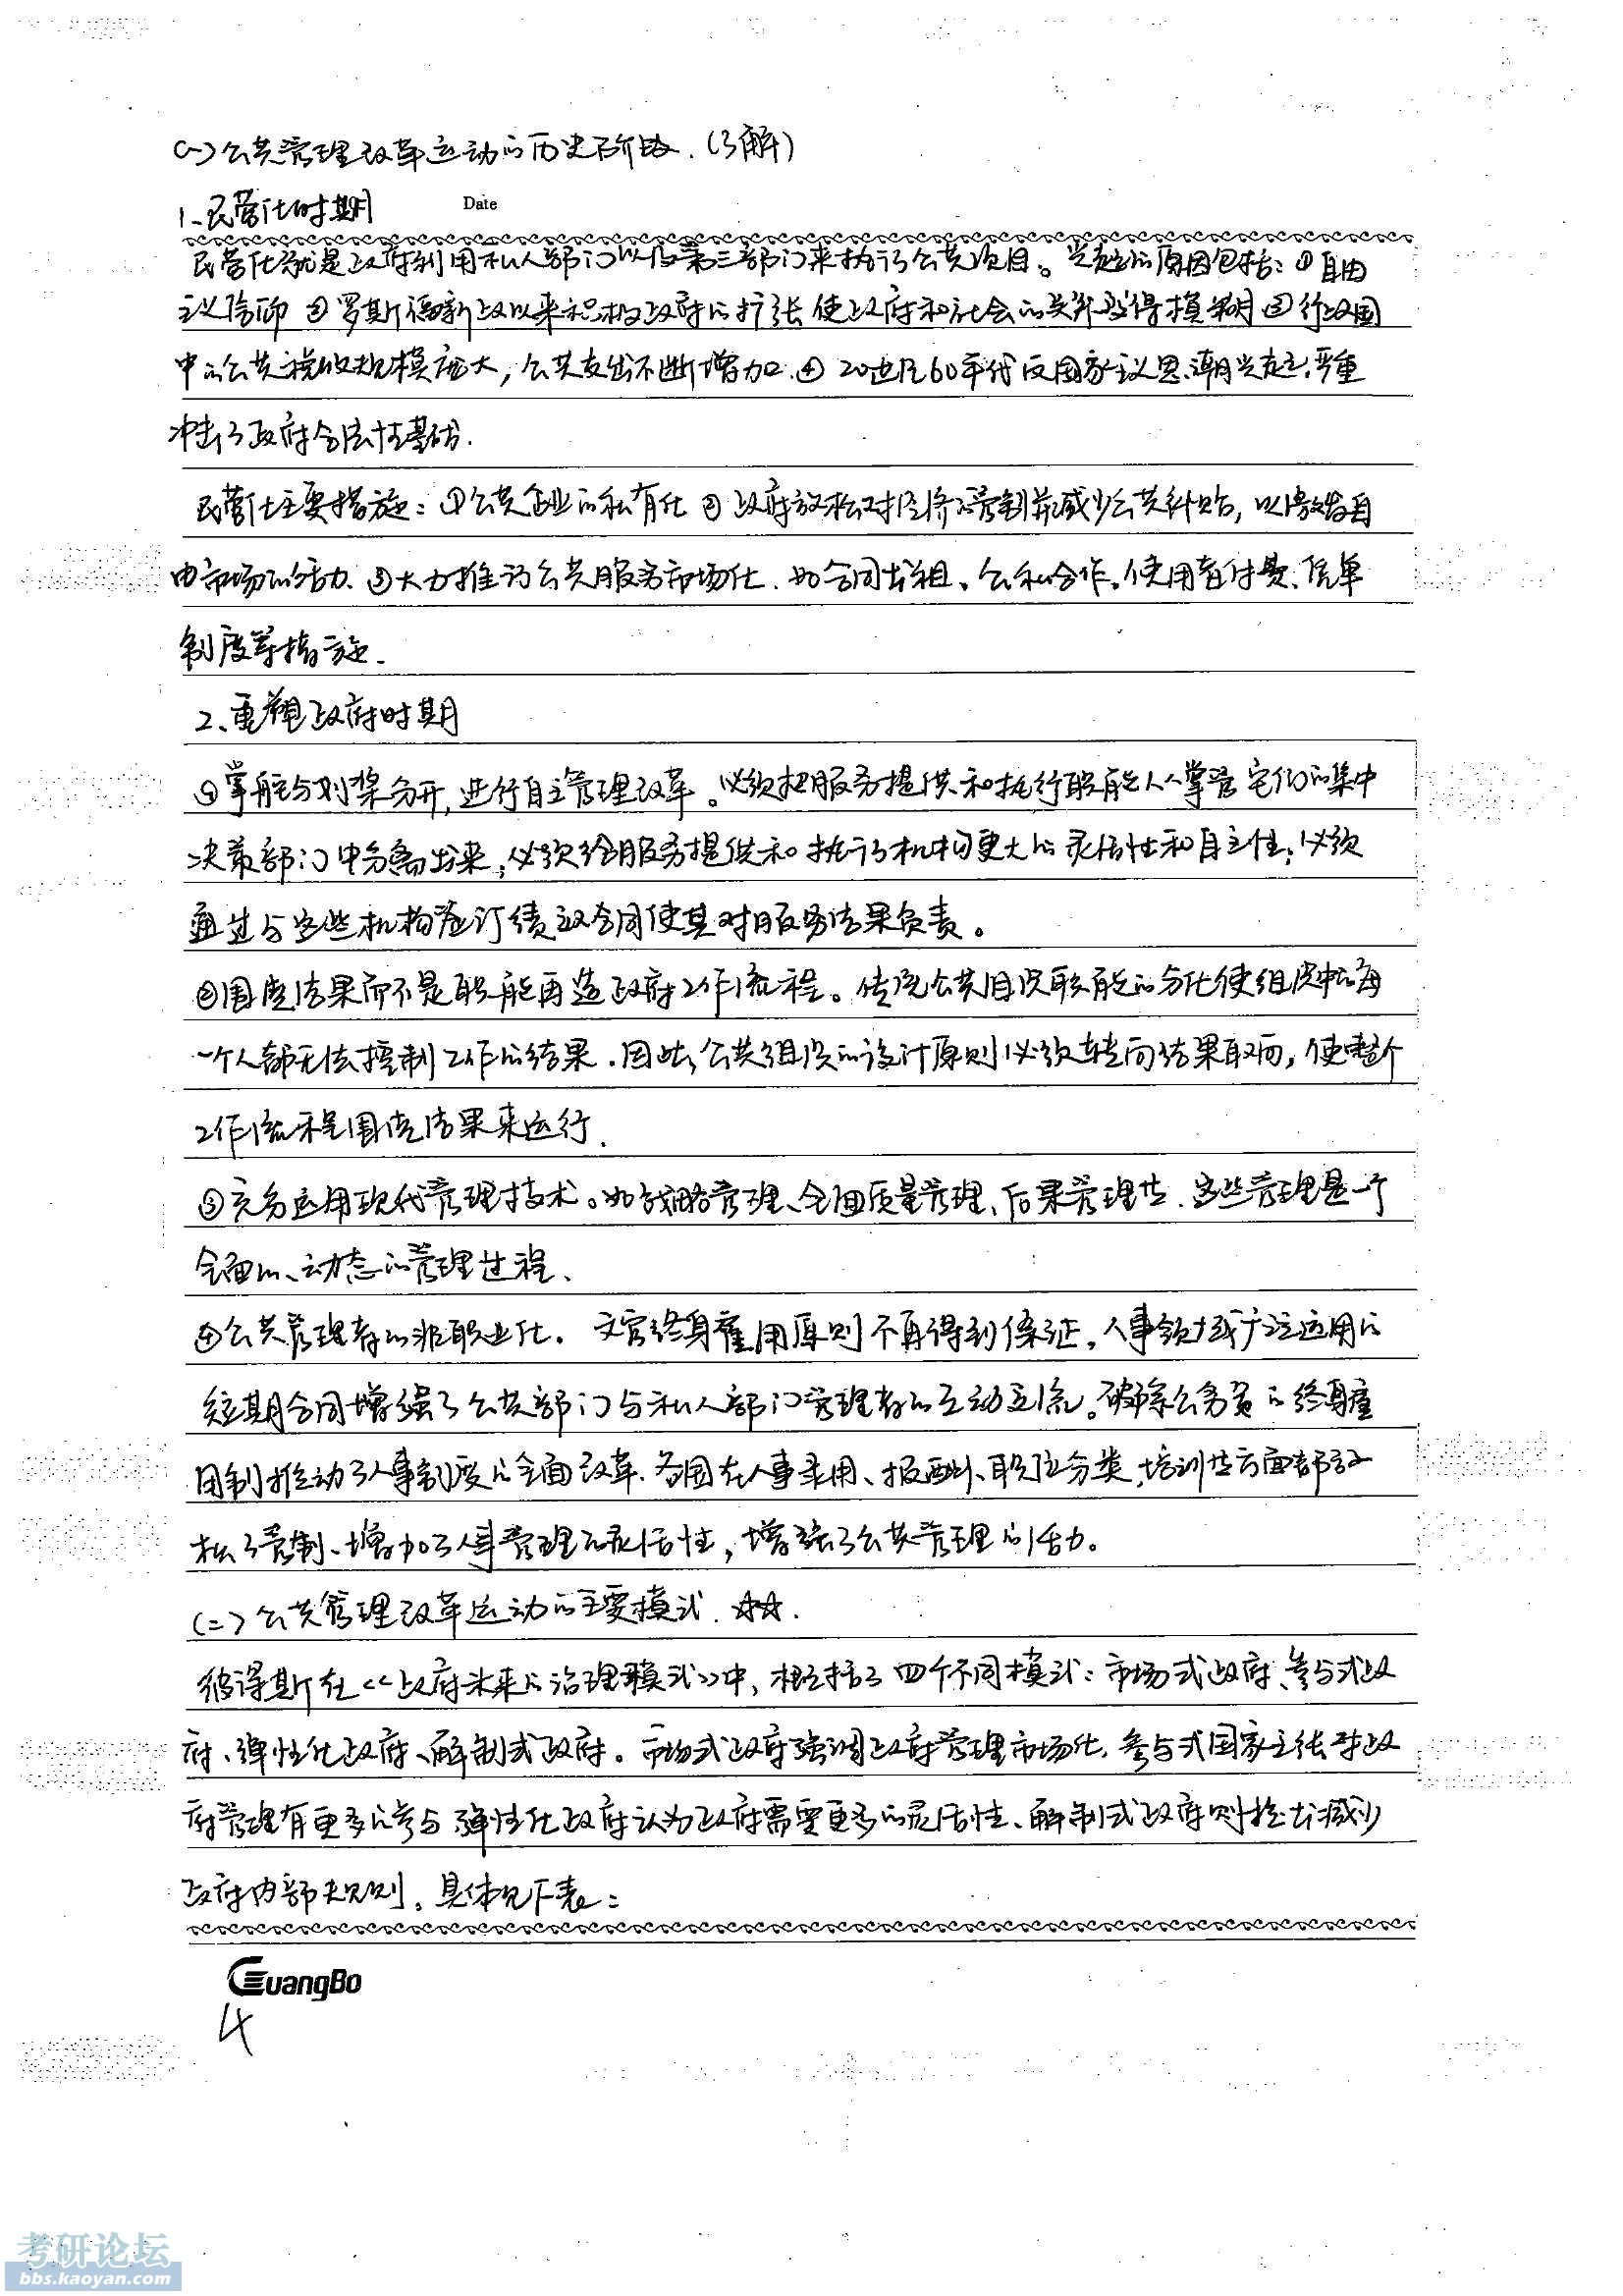 (一)公共管理改革运动的历史阶段.(了解)
1、民营化时期
Date
民营化就是政府利用私人部门以及第三部门来执行公共项目。兴起的原因包括:①自由
主义信仰 ②罗斯福新政以来积极政府的扩张使政府和社会的关界变得模糊 ③行政国
中的公共税收规模庞大,公共支出不断增加.④20世纪60年代反国家主义思潮兴起,严重
冲击了政府合法性基础.
民营化主要措施:①公共企业的私有化 ②政府放松对经济的管制并减少公共补贴,以激活自
由市场的活力.③大力推行公共服务市场化.如合同出租、公私合作、使用者付费、凭单
制度等措施.
2、重塑政府时期
①掌舵与划桨分开,进行自主管理改革。必须把服务提供和执行职能从掌管它们的集中
决策部门中分离出来,必须给服务提供和执行机构更大的灵活性和自主性,必须
通过与这些机构签订绩效合同使其对服务结果负责。
②围绕结果而不是职能再造政府工作流程。传统公共组织职能的分化使组织中的每
一个人都无法控制工作的结果.因此,公共组织的设计原则必须转向结果取向,使整个
工作流程围绕结果来运行.
③充分运用现代管理技术。如战略管理、全面质量管理、后果管理等.这些管理是一个
全面的、动态的管理过程、
④公共管理者的非职业化。文官终身雇用原则不再得到保证,人事领域广泛运用的
短期合同增强了公共部门与私人部门管理者的互动交流。破除公务员的终身雇
用制推动了人事制度的全面改革.各国在人事录用、报酬、职位分类,培训等方面都放
松了管制、增加了人事管理的灵活性,增强了公共管理的活力。
(二)公共管理改革运动的主要模式.☆☆.
彼得斯在<<政府未来的治理模式>>中,概括了四个不同模式:市场式政府、参与式政
府、弹性化政府、解制式政府。市场式政府强调政府管理市场化,参与式国家主张对政
府管理有更多的参与 弹性化政府认为政府需要更多的灵活性、解制式政府则提出减少
政府内部规则。具体见下表:
GuangBo
4
考研论坛
bbs.kaoyan.com